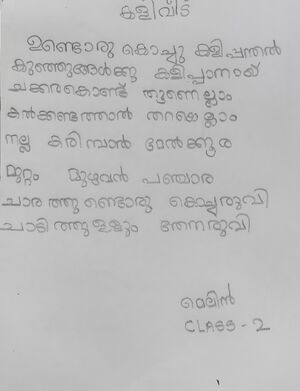 കളിവീട്
ഉണ്ടൊരു കൊച്ചു കളിപ്പന്തൽ
കുഞ്ഞുങ്ങൾക്കു കളിപ്പാനായ്
ചക്കരകൊണ്ട് തൂണെല്ലാം
കൽക്കണ്ടത്താൽ തറയെല്ലാം
നല്ല കരിമ്പാൽ മേൽക്കൂര
മുറ്റം മുഴുവൻ പഞ്ചാര
ചാരത്തുണ്ടൊരു കൊച്ചരുവി
ചാടിത്തുള്ളും തേനരുവി
മെലിൻ
CLASS - 2